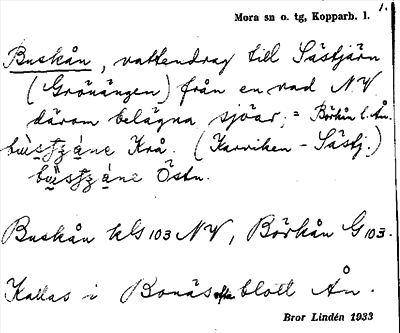 1.
Mora sn o. tg, Kopparb. l.
Buskån, vattendrag till Sästjärn
(Grönängen) från en rad NV
därom belägna sjöar, = Börkån l. Ån.
Krå. (Karriken - Sästj.)
Östn.
Buskån kG 103 NV, Börkån G 103.
Kallas i Bonäs ofta blott Ån.
Bror Lindén 1933